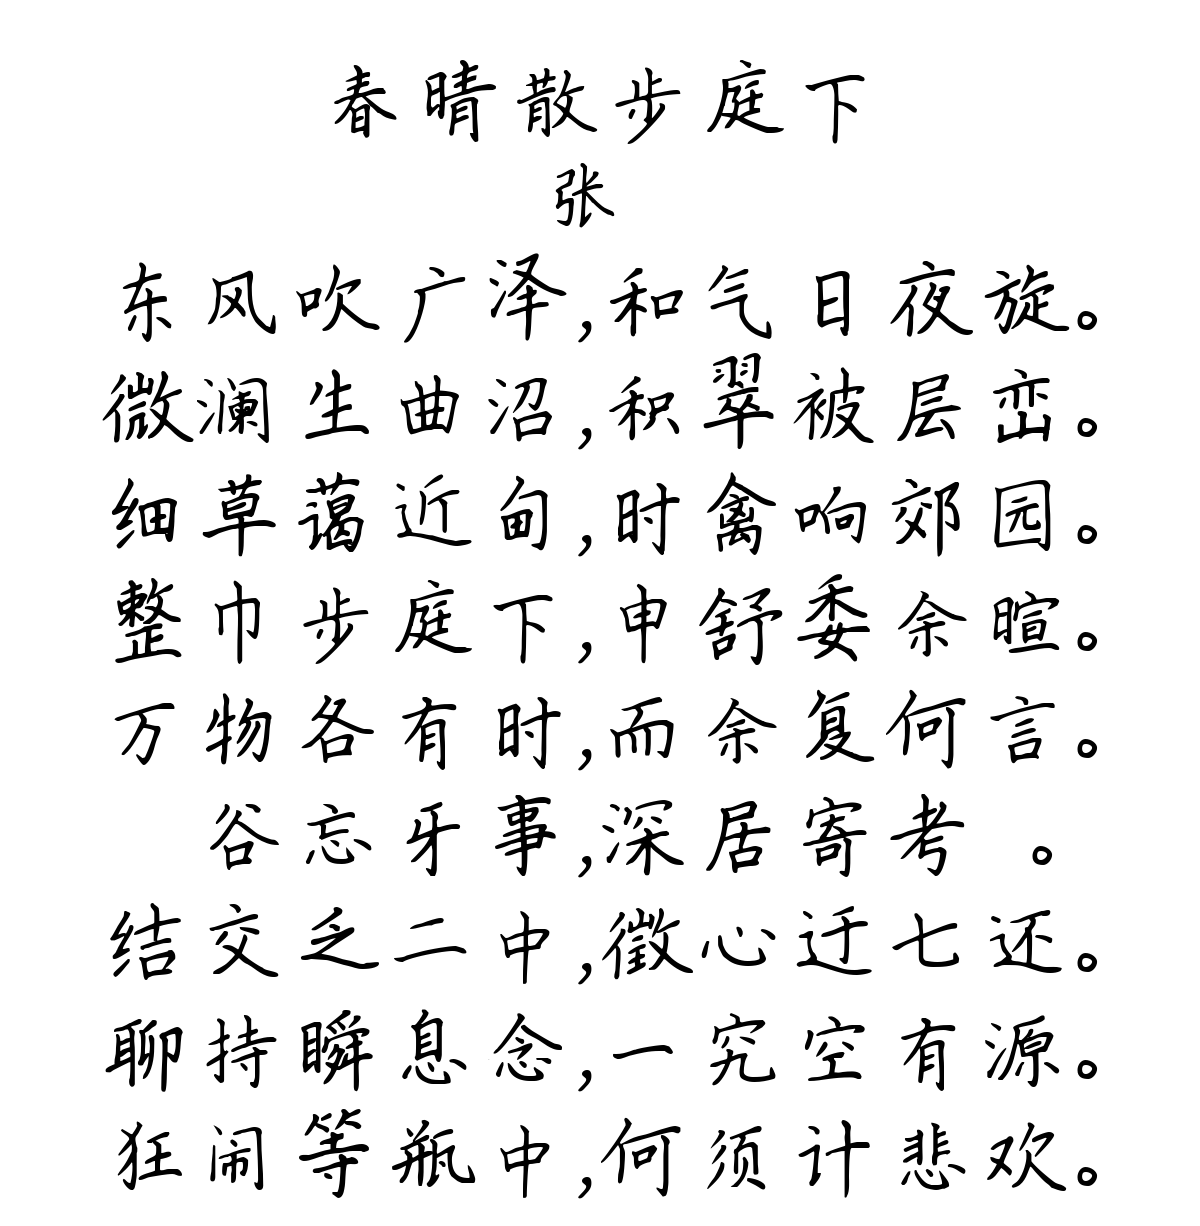 春晴散步庭下
张
东风吹广泽,和气日夜旋。
微澜生曲沼,积翠被层峦。
细草蔼近甸,时禽响郊园。
整巾步庭下,申舒委余暄。
万物各有时,而余复何言。
谷忘牙事,深居寄考 。
结交乏二中,徵心迂七还。
聊持瞬息念,一究空有源。
狂闹等瓶中,何须计悲欢。